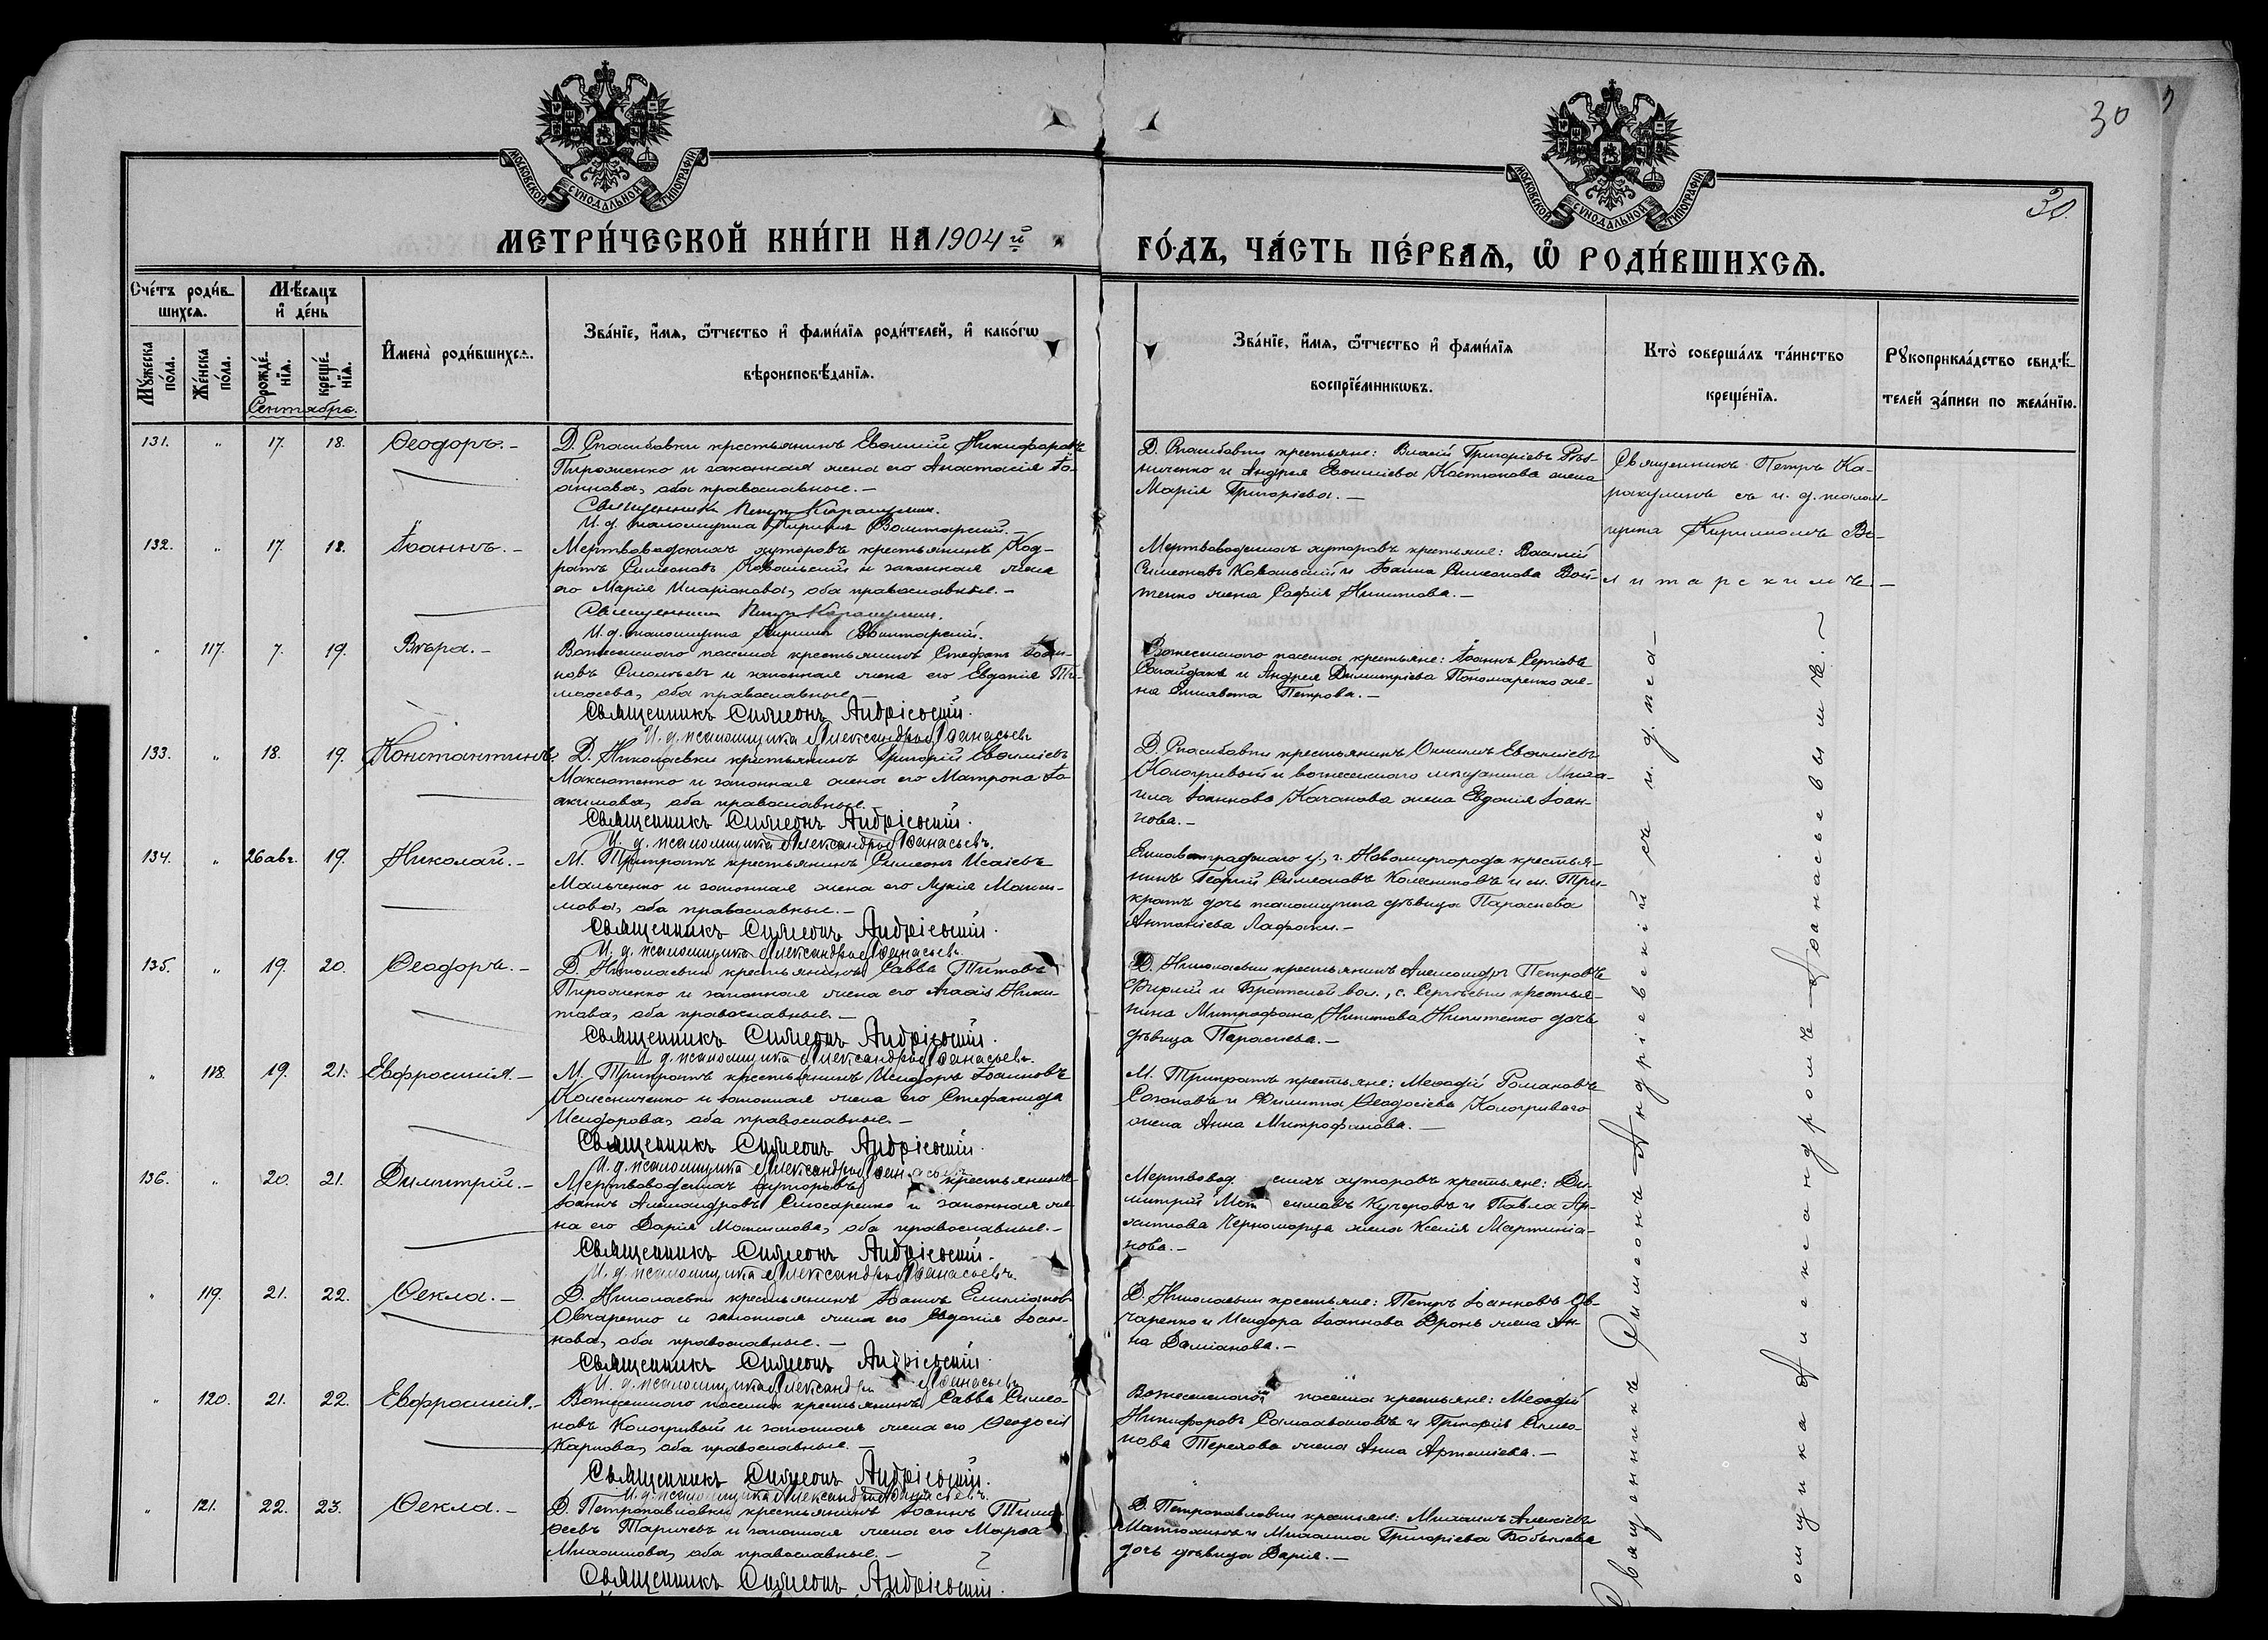 30
30.
МОСКОВСКОЙ СѴНОДАЛЬНОЙ ТИПОГРАФІИ
МОСКОВСКОЙ СѴНОДАЛЬНОЙ ТИПОГРАФІИ
МЕТРИ́ЧЕСКОЙ КНИ́ГИ НА 1904 й
ГО́ДЪ, ЧА́СТЬ ПЕ́РВАѦ, Ѽ РОДИ́ВШИХСѦ.
Сче́тъ роди́в-
шихсѧ.
Мѣ́сѧцъ
и҆ де́нь
Мꙋ́жеска по́ла.
Же́нска по́ла.
рожде́-
нїѧ.
креще́-
нїѧ.
Сентябрь.
И҆мена̀ роди́вшихсѧ.
Зва́нїе, и҆́мѧ, ѻ҆́тчество и҆ фами́лїѧ роди́телей, и҆ како́гѡ
вѣроисповѣ́данїѧ.
Зва́нїе, и҆́мѧ, ѻ҆́тчество и҆ фами́лїѧ
воспрїе́мникѡвъ.
Кто̀ соверша́лъ та́инство
креще́нїѧ.
Рꙋкоприкла́дство свидѣ́-
телей за́писи по жела́нїю.
131. „ 17. 18. Ѳеодоръ.-
Д. Спасибовки крестьянинъ Евѳимій Никифоровъ
Пироженко и законная жена его Анастасія Іо-
аннова, оба православные.-
Священникъ Петръ Каракулинъ.
И. д. псаломщика Кириллъ Волитарскій.-
Д. Спасибовки крестьяне: Власій Григорьевъ
ниченко и Андрея Евѳиміева Костюкова жена
Марія Григорьева.-
Священникъ Петръ Ка-
ракулинъ съ и. д. псалом-
щика Кирилломъ Во-
литарскимъ.-
132. „ 17. 18. Іоаннъ.-
Мертвоводскихъ хуторовъ крестьянинъ Код-
ратъ Симеоновъ Ковальскій и законная жена
его Марія Иларіонова, оба православные.-
Священникъ Петръ Каракулинъ.
И. д. псаломщика Кириллъ Волитарскій.
Мертвоводскихъ хуторовъ крестьяне: Василій
Симеоновъ Ковальскій и Іоанна Симеонова Вой-
тенко жена Софія Никитова.-
„ 117. 7. 19. Вѣра.-
Вознесенского поселка крестьянинъ Стефанъ Іоан-
новъ и законная жена его Евдокія Ти-
моѳеева, оба православные.-
Священникъ Симеонъ Андріевскій.
И. д. псаломщика Александръ Аѳанасьевъ
Вознесенского поселка крестьяне: Іоаннъ Сергіевъ
Согайдакъ и Андрея Димитріева Пономаренко же-
на Елисавета Петрова.-
133. „ 18. 19. Константинъ.
Д. Николаевки крестьянинъ Григорій Евѳиміевъ
Максютенко и законная жена его Матрона Іо-
акимова, оба православные.
Священникъ Симеонъ Андріевскій.
И. д. псаломщика Александръ Аѳанасьевъ.
Д. Спасибовки крестьянинъ Онисимъ Евѳиміевъ
Кологривый и вознесенского мѣщанина Миха-
ила Іоаннова Качанова жена Евдокія Іоан-
нова.-
134. „ 26 авг. 19. Николай.-
М. Трикратъ крестьянинъ Симеонъ Исаіевъ
Мальченко и законная жена его Лукія Макси-
мова, оба православные.-
Священникъ Симеонъ Андріевскій.
И. д. псаломщика Александръ Аѳанасьевъ
Елисаветградского у., г. Новомиргорода крестья-
нинъ Георгій Симеоновъ Колесниковъ и м. Три-
кратъ дочь псаломщика дѣвица Параскева
Антоніева Лафаки.-
135. „ 19. 20. Ѳеодоръ.-
Д. Николаевки крестьянинъ Савва Титовъ
Пироженко и законная жена его Агаѳія Ники-
това, оба православные.-
Священникъ Симеонъ Андріевскій.
И. д. псаломщика Александръ Аѳанасьевъ.
Д. Николаевки крестьянинъ Александръ Петровъ
и Братской вол., с. Сергѣевки крестья-
нина Митрофана Никитова Никитенко дочь
дѣвица Параскева.-
„ 118. 19. 21. Евфросинія.-
М. Трикратъ крестьянинъ Исидоръ Іоанновъ
Колесниченко и законная жена его Стефанида
Исидорова, оба православные.-
Священникъ Симеонъ Андріевскій.
И. д. псаломщика Александръ Аѳанасьевъ
М. Трикратъ крестьяне: Меѳодій Романовъ
Созоновъ и Филиппа Ѳеодосіева Кологриваго
жена Анна Митрофанова.-
136. „ 20. 21. Димитрій.-
Мертвоводскихъ хуторовъ крестьянинъ
Іоаннъ Александровъ Слюсаренко и законная же-
на его Дарія Максимова, оба православные.-
Священникъ Симеонъ Андріевскій.
И. д. псаломщика Александръ Аѳанасьевъ.
Мертвоводскихъ хуторовъ крестьяне: Ди-
митрій Максимовъ Кучеровъ и Павла Ар-
хиппова Черноморца жена Ксенія Мартиніа-
нова.-
„ 119. 21. 22. Ѳекла.-
Д. Николаевки крестьянинъ Іоаннъ Емиліановъ
Овчаренко и законная жена его Евдокія Іоан-
нова, оба православные.-
Священникъ Симеонъ Андріевскій.
И. д. псаломщика Александръ Аѳанасьевъ
Д. Николаевки крестьяне: Петръ Іоанновъ Ов-
чаренко и Исидора Іоаннова Дронь жена Ан-
на Даміанова.-
„ 120. 21. 22. Евфросинія.-
Вознесенского поселка крестьянинъ Савва Симео-
новъ Кологривый и законная жена его Ѳеодосія
Карпова, оба православные.-
Священникъ Симеонъ Андріевскій.
И. д. псаломщика Александръ Аѳанасьевъ.
Вознесенского поселка крестьяне: Меѳодій
Никифоровъ и Григорія Симео-
нова Терехова жена Анна Артеміева.-
„ 121. 22. 23. Ѳекла.-
Д. Петропавловки крестьянинъ Іоаннъ Тимо-
ѳеевъ Таричевъ и законная жена его Марѳа
Михаилова, оба православные.-
Священникъ Симеонъ Андріевскій.
Д. Петропавловки крестьяне: Михаилъ Алексіевъ
Матюхинъ и Михаила Григоріева Бобылева
дочь дѣвица Дарія.-
Священникъ Симеонъ Андріевскій съ и. д. пса-
омщика Александромъ Аѳанасьевымъ.-